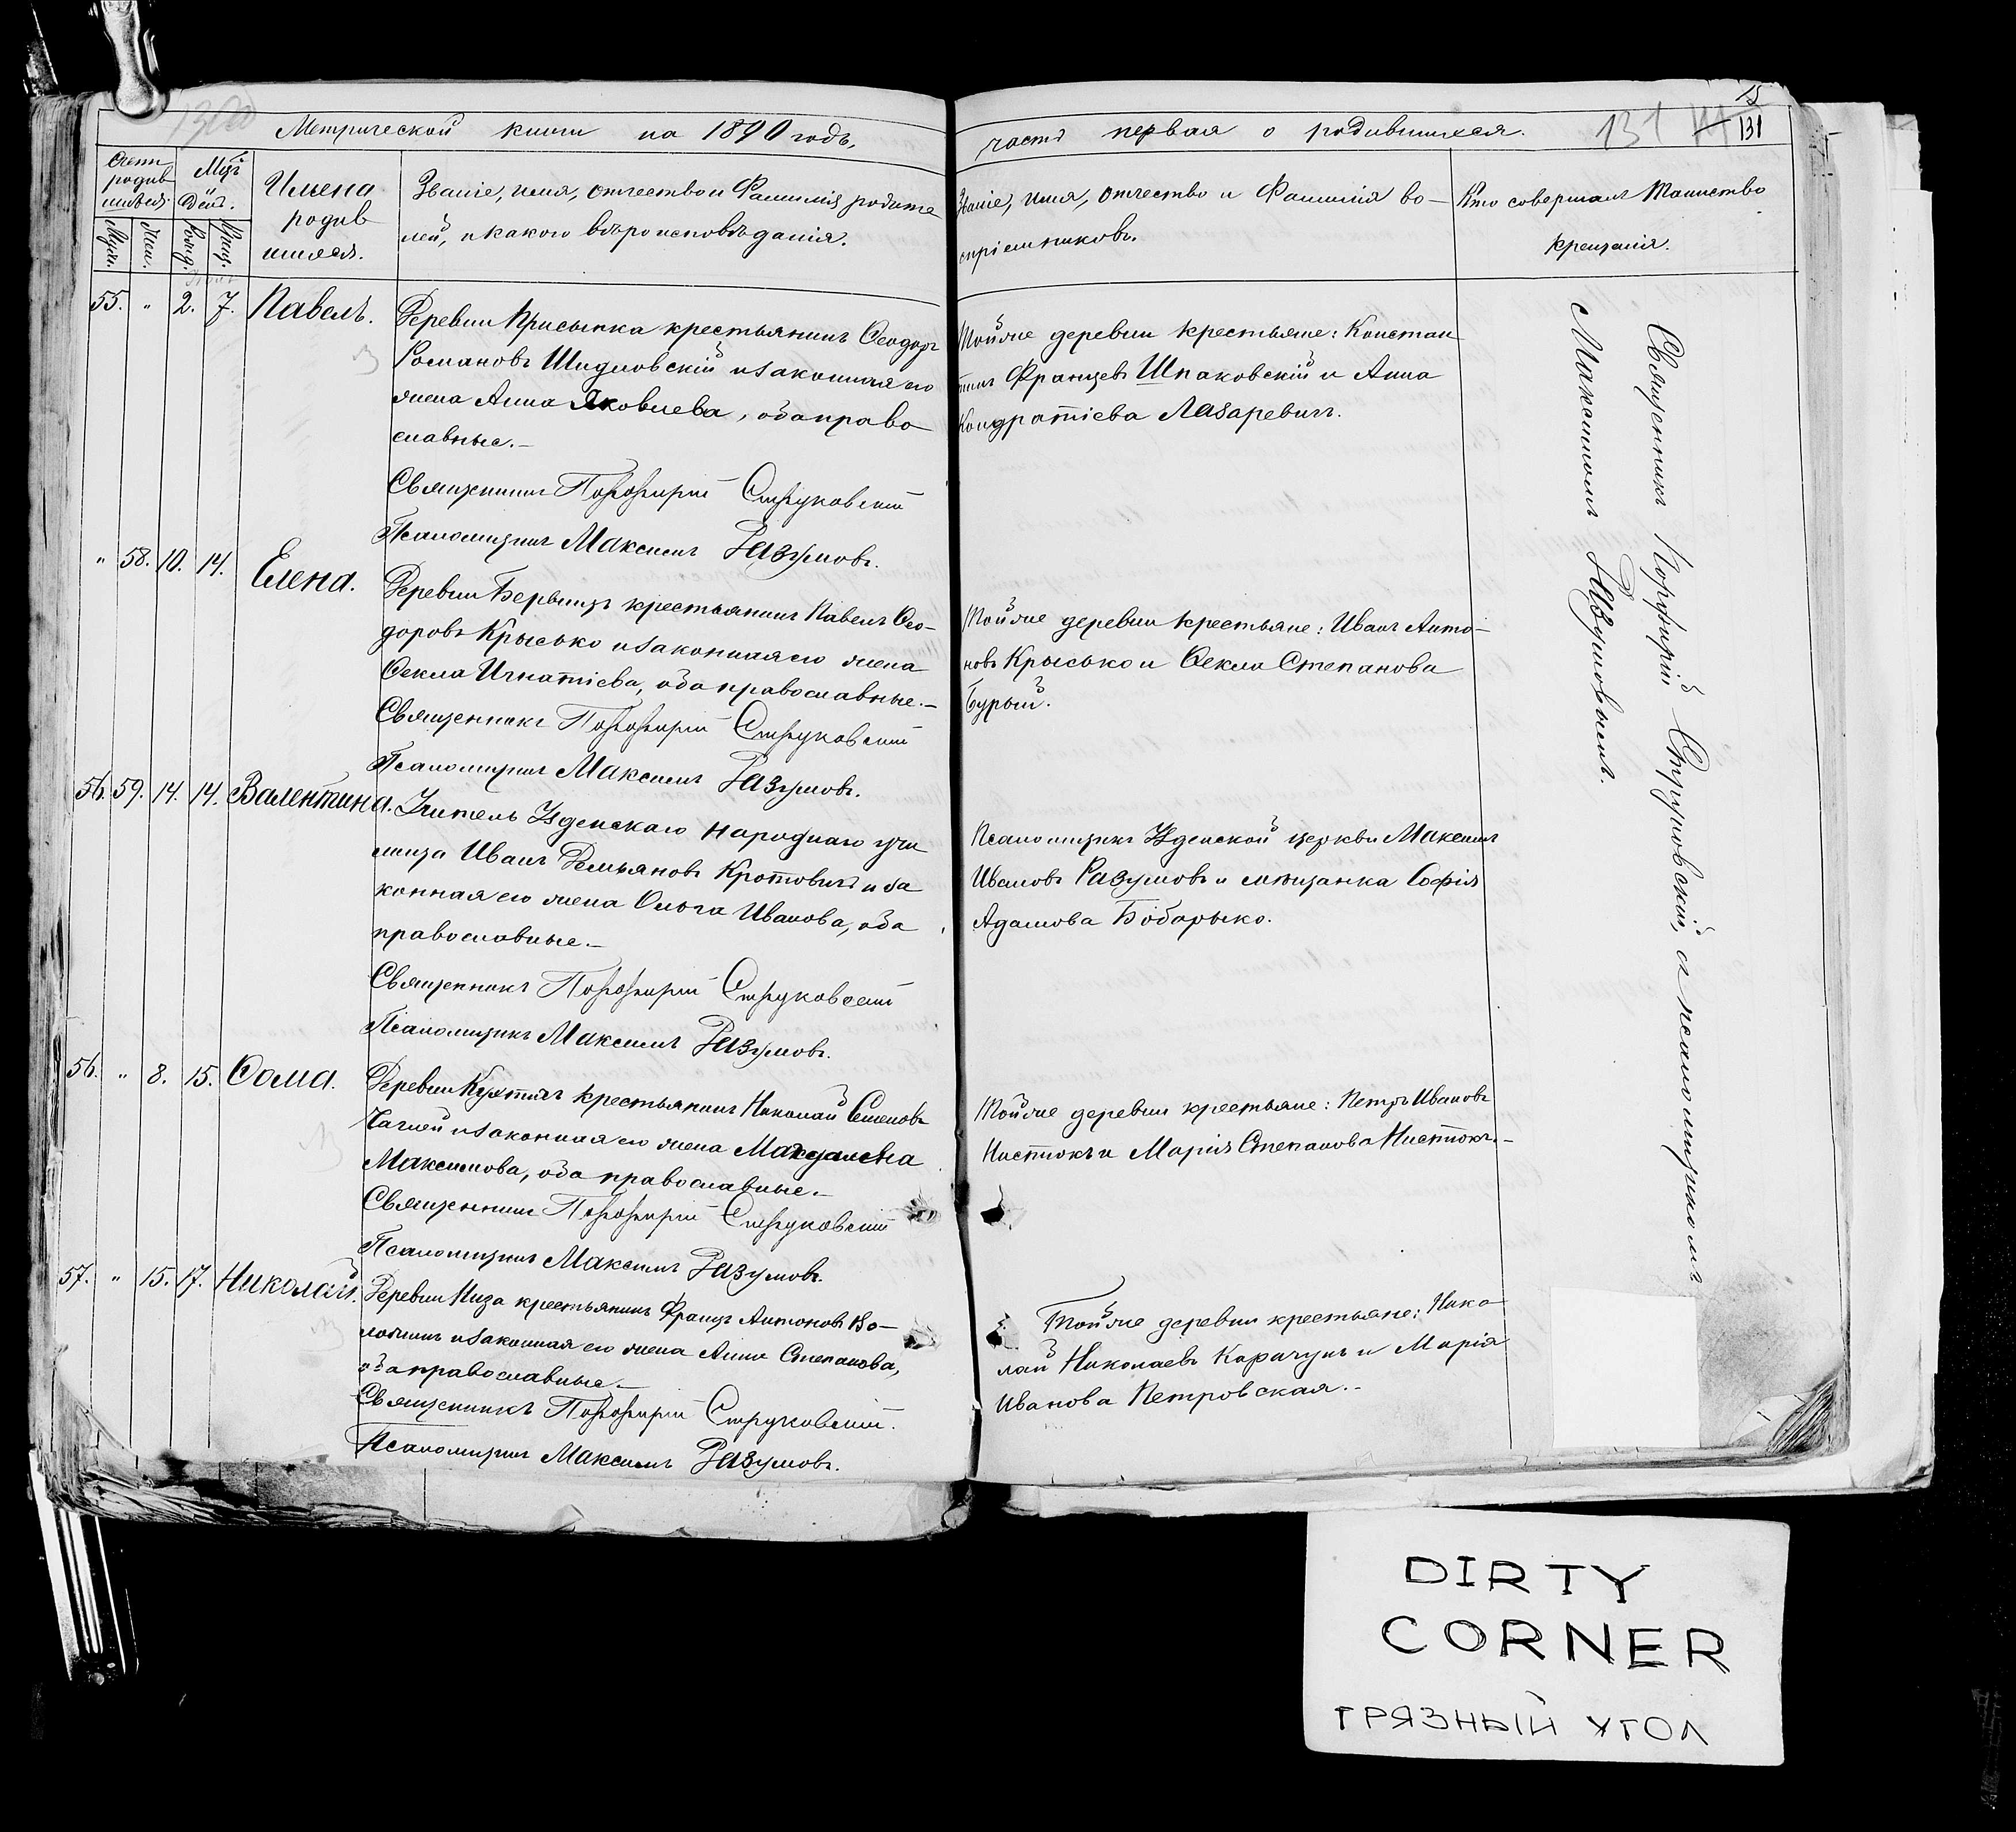 Метрической книги на 1890 годъ,
Счетъ родив шихся.
Мѣсяцъ и День.
Имена родив шихся.
Званіе, имя, отчество и Фамилія родите
лей, и какого вѣроисповѣданія.
Муж.
Жен.
Рожд.
Крещ.
55. " 2. 7. Павелъ.
Деревни Присынка крестьянинъ Ѳеодоръ
Романовъ Шидловскій и законная его
жена Анна Яковлева, оба право
славные.—
Священникъ Порфирій Струковскій
Псаломщикъ Максимъ Разумовъ.
" 58. 10. 14. Елена.
Деревни Бервищъ крестьянинъ Павелъ Ѳео-
доровъ Крысько и законная его жена
Ѳекла Игнатіева, оба православные.—
Священникъ Порфирій Струковскій
Псаломщикъ Максимъ Разумовъ.
56. 59. 14. 14. Валентина.
Учитель Узденскаго народнаго учи
лища Иванъ Демьяновъ Кротовичъ и за
конная его жена Ольга Иванова, оба
православные.—
Священникъ Порфирій Струковскій
Псаломщикъ Максимъ Разумовъ.
56. " 8. 15. Ѳома.
Деревни Кухтичъ крестьянинъ Николай Семеновъ
и законная его жена Магдалена
Максимова, оба православные.—
Священникъ Порфирій Струковскій
Псаломщикъ Максимъ Разумовъ.
57. " 15. 17. Николай.
Деревни Низа крестьянинъ Францъ Антоновъ
и законная его жена Анна Степанова,
оба православные.—
Священникъ Порфирій Струковскій.
Псаломщикъ Максимъ Разумовъ.
15
131
131
часть первая о родившихся.
Званіе, имя, отчество и Фамилія во—
спріемниковъ.
Кто совершалъ Таинство
крещенія.
Тойже деревни крестьяне: Констан
тинъ Францевъ Шпаковскій и Анна
Кондратіева Лазаревичъ.
Тойже деревни крестьяне: Иванъ Анто—
новъ Крысько и Ѳекла Степанова
Бурый.
Псаломщикъ Узденской церкви Максимъ
Ивановъ Разумовъ и мѣщанка Софія
Адамова Боборыко.
Тойже деревни крестьяне: Петръ Ивановъ
Нистюкъ и Марія Степанова Нистюкъ.—
Тойже деревни крестьяне: Нико
лай Николаевъ Карачунъ и Марія
Иванова Петровская.—
Священникъ Порфирій Струковскій, съ псаломщикомъ
Максимомъ Разумовымъ.
DIRTY
CORNER
ГРЯЗНЫЙ УГОЛ